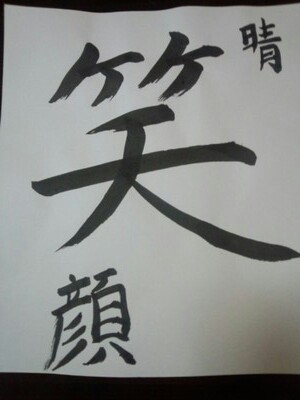 晴
笑
顔